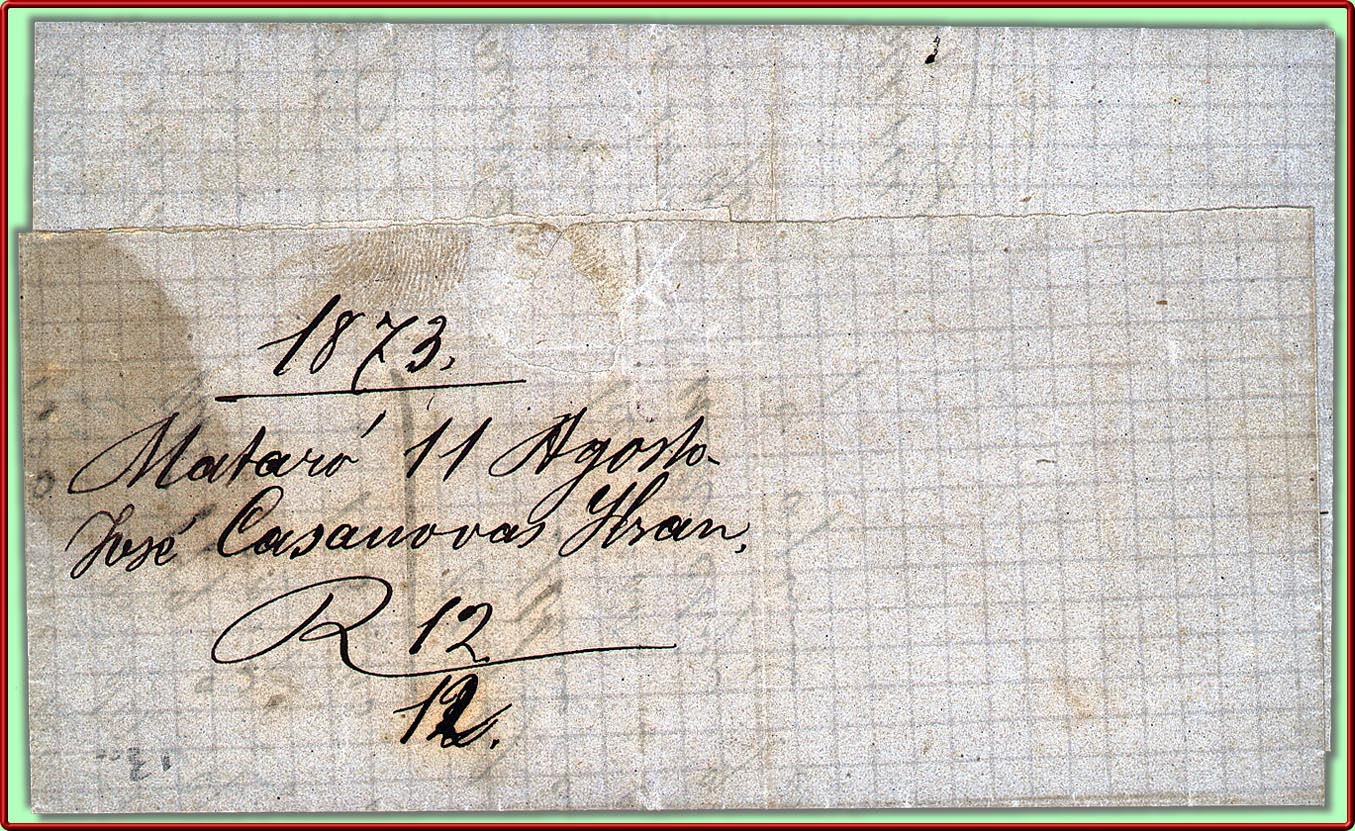 1873.
Mataró 11 Agosto
José Casanovas
R 12
12.